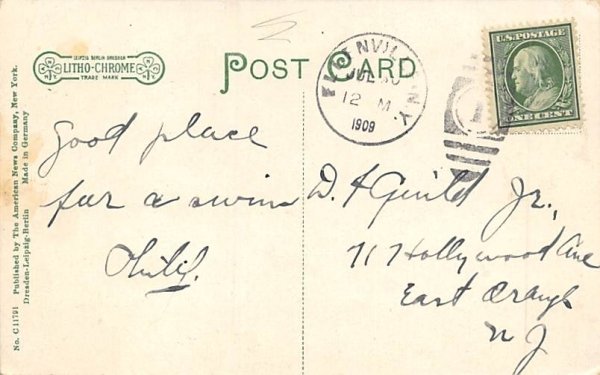 LEIPZIG BERLIN DRESDEN
LITHO-CHROME
TRADE MARK
POST CARD
ENVI
N.Y.
JUL 30
12 M
1909
U.S. POSTAGE
ONE CENT
Good place
for a swim
Phil.
D. F. Guild Jr.,
717 Hollywood Ave
East Orange
N J
No. C 11791 Published by The American News Company, New York.
Dresden-Leipzig-Berlin Made in Germany